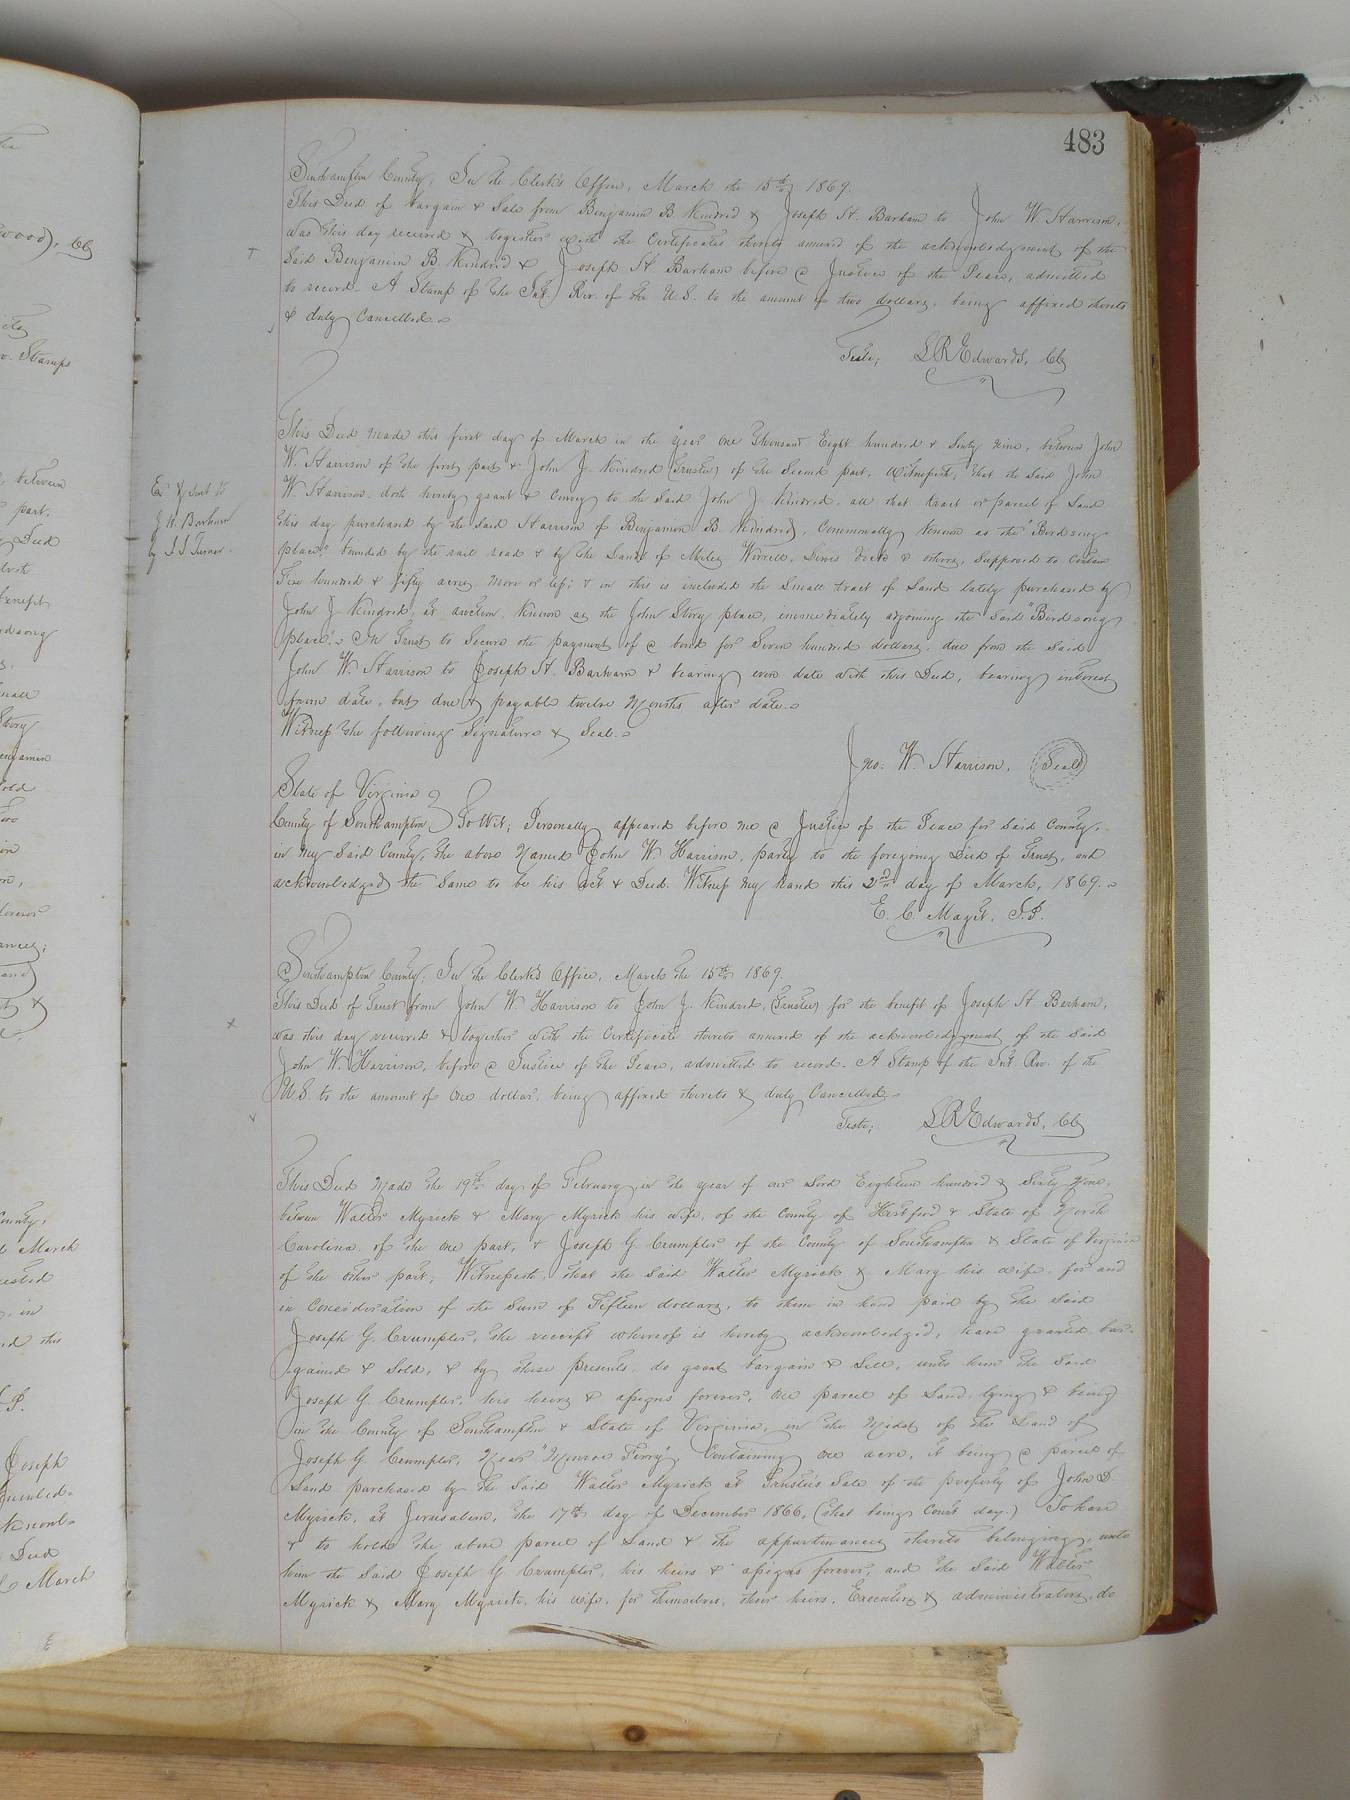 483
Southampton County, In the Clerk's Office, March the 15th 1869.
This Deed of Bargain & Sale from Benjamin B Kindred & Joseph H. Barham to John W Harrison,
was this day received & together with the Certificates thereto annexed of the acknowledgment of the
Said Benjamin B Kindred & Joseph H Barham before a Justice of the Peace, admitted
to record. A Stamp of the Int. Rev. of the U.S. to the amount of two dollars, being affixed thereto
& duly Cancelled.
Teste; L R Edwards, Clk
This Deed made this first day of March in the Year One Thousand Eight hundred & Sixty Nine, between John
W. Harrison of the first part & John J. Kindred (Trustee) of the Second part, Witnesseth, That the Said John
W Harrison doth hereby grant & Convey to the Said John J. Kindred, all that tract or parcel of Land
this day purchased by the Said Harrison of Benjamin B. Kindred, Commonally known as the "Birdsong
place" bounded by the rail road & by the Lands of Miles Worrell, & others, Supposed to Contain
hundred & fifty acres more or less; & in this is included the Small tract of Land lately purchased by
John J. Kindred, at auction, known as the John Story place, immediately adjoining the Said "Birdsong
place". In Trust to Secure the payment of a bond for Seven hundred dollars, due from the Said
John W. Harrison to Joseph H. Barham & bearing even date with this Deed, bearing interest
from date, but due & payable twelve Months after date.
Witness the following Signature & Seal.
Ex & Sent to
J H. Barham
by J J Turner.
Jno: W. Harrison, (Seal)
State of Virginia
County of Southampton To Wit; Personally appeared before me a Justice of the Peace for Said County,
in my Said County, the above Named John W. Harrison, party to the foregoing Deed of Trust, and
acknowledged the Same to be his act & Deed. Witness my hand this 2nd day of March, 1869.
E. C. Maget. J.P.
Southampton County; In the Clerk's Office, March the 15th 1869.
This Deed of Trust from John W. Harrison to John J. Kindred, (Trustee) for the benefit of Joseph H Barham,
was this day received & together with the Certificate thereto annexed of the acknowledgment of the Said
John W. Harrison, before a Justice of the Peace, admitted to record. A Stamp of the Int. Rev. of the
U.S. to the amount of One dollar, being affixed thereto & duly Cancelled.
Teste; L R Edwards, Clk
This Deed Made the 19th day of February in the year of our Lord Eighteen hundred & Sixty Nine,
between Walter Myrick & Mary Myrick his wife, of the County of Hertford & State of North
Carolina of the one part, & Joseph G. Crumpler of the County of Southampton & State of Virginia
of the other part, Witnesseth, that the Said Walter Myrick & Mary his wife, for and
in Consideration of the Sum of Fifteen dollars, to them in hand paid by the Said
Joseph G. Crumpler, the receipt whereof is hereby acknowledged, have granted, bar-
gained & Sold, & by these presents, do grant bargain & Sell, unto him the Said
Joseph G. Crumpler, his heirs & assigns forever, one parcel of Land, lying & being
in the County of Southampton & State of Virginia, in the Midst of the Land of
Joseph G. Crumpler, Near "Monroe Ferry", Containing one acre, it being a parcel of
Land purchased by the Said Walter Myrick at Trustee's Sale of the property of John D
Myrick, at Jerusalem, the 17th day of December 1866, (that being Court day.) To have
& to hold the above parcel of Land & the appurtenances thereto belonging, unto
him the Said Joseph G Crumpler, his heirs & assigns forever, and the Said Walter
Myrick & Mary Myrick, his wife, for Themselves, their heirs, Executors & administrators, do